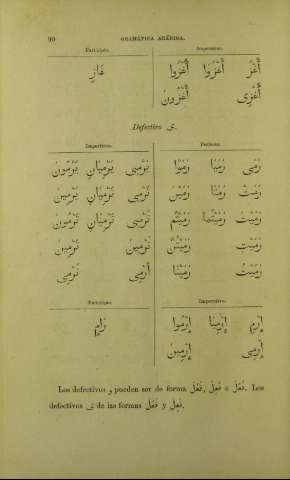 90 GRAMÁTICA ARÁBIGA.
Participio. Imperativo.
أُغْزُ أُغْزُوَا أُغْزُوا غَازٍ
أُغْزِى أُغْزُونَ
Defectivo ى.
Imperfecto. Perfecto.
رَمَى رَمَيَا رَمَوْا يَرْمِى يَرْمِيَانِ يَرْمُونَ
رَمَتْ رَمَتَا رَمَيْنَ تَرْمِى تَرْمِيَانِ يَرْمِينَ
رَمَيْتَ رَمَيْتُمَا رَمَيْتُمْ تَرْمِى تَرْمِيَانِ تَرْمُونَ
رَمَيْتِ رَمَيْتُنَّ تَرْمِينَ تَرْمِينَ
رَمَيْتُ رَمَيْنَا أَرْمِى نَرْمِى
Participio. Imperativo.
إِرْمِ إِرْمِيَا إِرْمُوا رَامٍ
إِرْمِى إِرْمِينَ
Los defectivos و pueden ser de forma فَعَلَ, فَعِلَ ó فَعُلَ. Los
defectivos ى de las formas فَعَلَ y فَعِلَ.